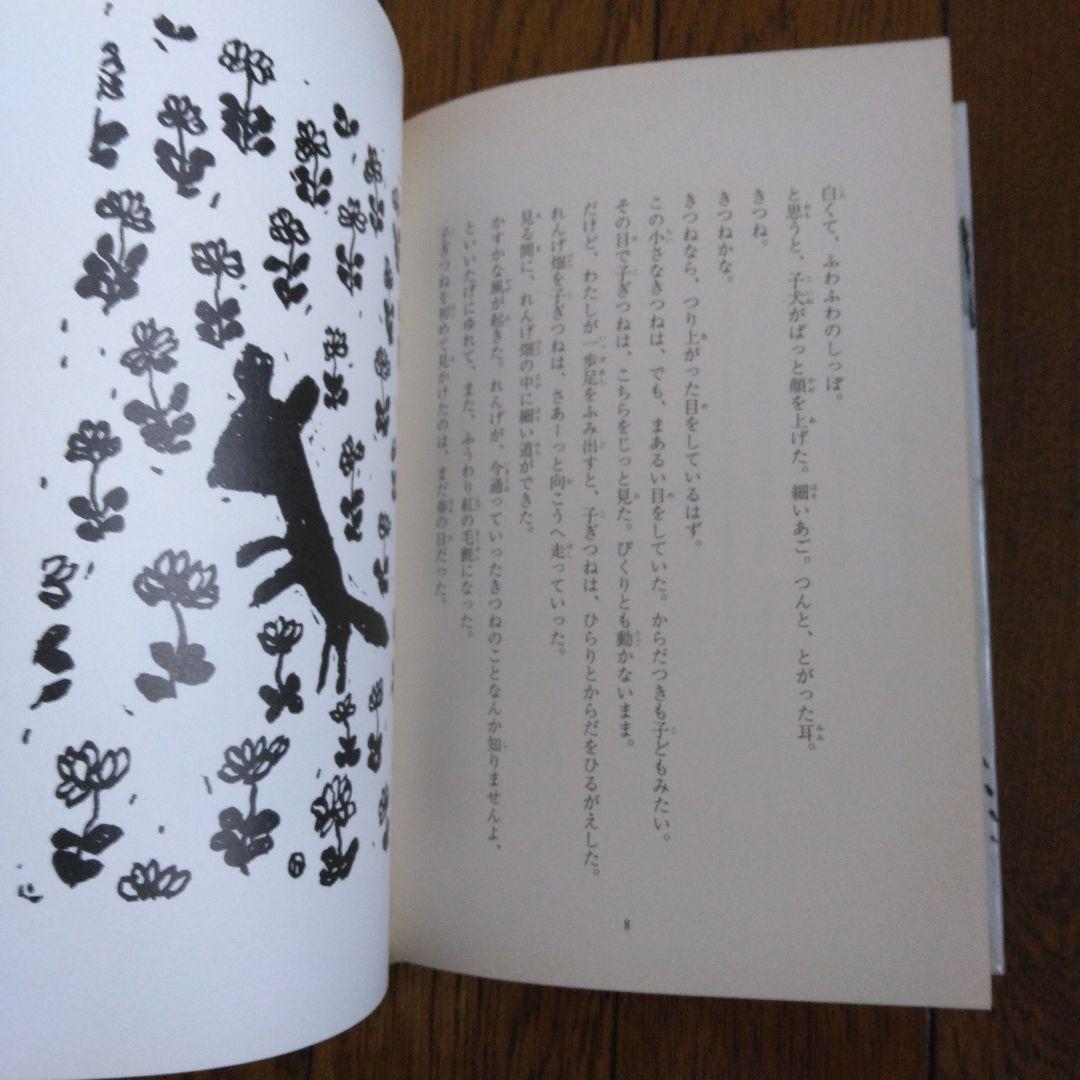 白くて、ふわふわのしっぽ。
と思うと、子犬がぱっと顔を上げた。細いあご。つんと、とがった耳。
きつね。
きつねかな。
きつねなら、つり上がった目をしているはず。
この小さなきつねは、でも、まあるい目をしていた。からだつきも子どもみたい。
その目で子ぎつねは、こちらをじっと見た。ぴくりとも動かないまま。
だけど、わたしが一歩足をふみ出すと、子ぎつねは、ひらりとからだをひるがえした。
れんげ畑を子ぎつねは、さあーっと向こうへ走っていった。
見る間に、れんげ畑の中に細い道ができた。
かすかな風が起きた。れんげが、今通っていったきつねのことなんか知りませんよ、
といいたげにゆれて、また、ふうわり紅の毛氈になった。
子ぎつねを初めて見かけたのは、まだ春の日だった。
8